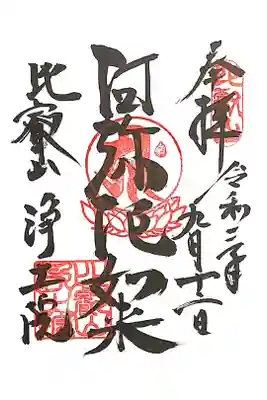 奉拝
令和二年九月十二日
阿弥陀如来
比叡山 浄土院